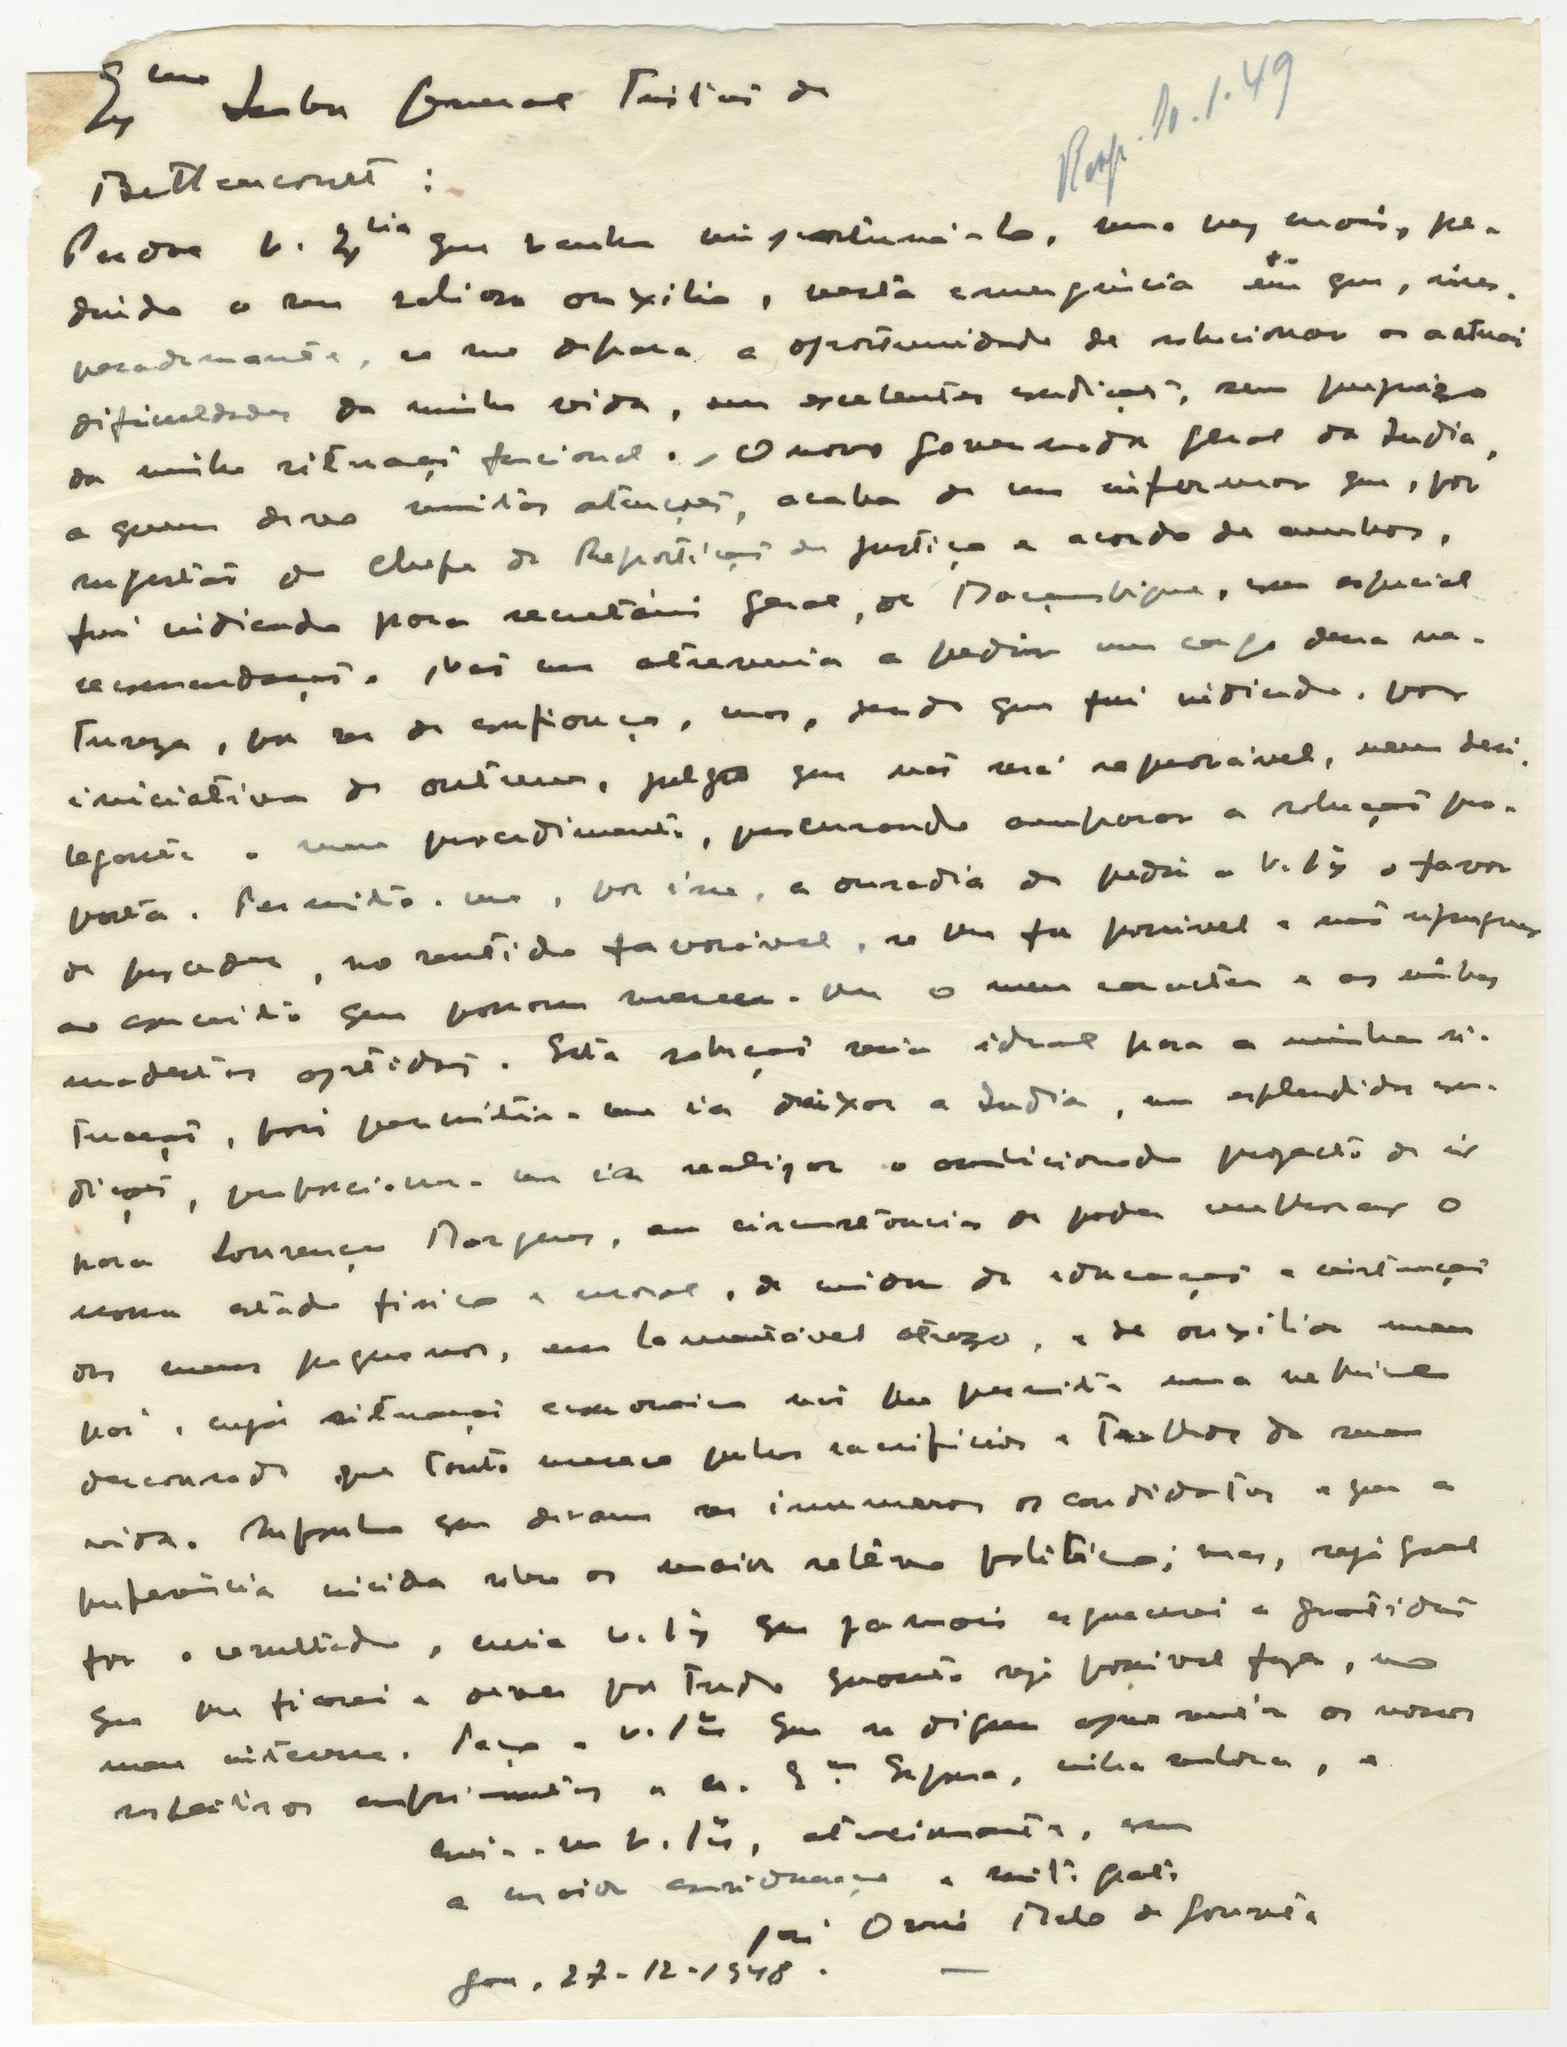 Ex.mo Senhor General Tristão de
Resp. 10.1.49
Bettencourt:
Perdoe V. Ex.cia que venha importuná-lo, uma vez mais, pe-
dindo o seu valioso auxílio, nesta emergência em que, ines-
peradamente, se me depara a oportunidade de solucionar as actuais
dificuldades da minha vida, em excelentes condições, sem prejuízo
da minha situação funcional. O novo Governador Geral da India,
a quem devo muitas atenções, acaba de me informar que, por
sugestão do Chefe da Repartição de Justiça e acordo de ambos,
fui indicado para secretário geral, de Moçambique, com especial
recomendação. Não me atreveria a pedir um cargo dessa na-
tureza, por ser de confiança, mas, desde que fui indicado, por
iniciativa de outrem, julgo que não será reprovável, nem desi-
legante o meu procedimento, procurando amparar a solução pro-
posta. Permita-me, por isso, a ousadia de pedir a V. Ex. o favor
de proceder, no sentido favorável, se lhe for possível e não repugnar
ao conceito que possam merecer-lhe o meu caracter e as minhas
modestas aptidões. Esta solução seria ideal para a minha si-
tuação, pois permitir-me-ia deixar a India, em esplendidas con-
dições, proporcionar-me-ia realizar o ambicionado projecto de ir
para Lourenço Marques, em circunstâncias de poder melhorar o
nosso estado fisico e moral, de cuidar da educação e instrução
dos meus pequenos, em lamentável atrazo, e de auxiliar meu
pai, cuja situação economica não lhe permite uma velhice
descansada que tanto merece pelos sacrificios e trabalhos da sua
vida. Suponho que devam ser inumeros os candidatos e que a
preferência incida sobre os de maior relêvo politico; mas, seja qual
for o resultado, creia V. Ex. que jamais esquecerei a gratidão
que lhe ficarei a dever por tudo quanto seja possivel fazer, no
meu interesse. Peço a V. Ex. que se digne apresentar os nossos
respeitosos cumprimentos a sua Ex.ma Esposa, minha senhora, e
creia-me V. Ex., atenciosamente, com
a maior consideração e muito grato
José Osorio Melo de Gouveia
Goa, 27-12-1948.